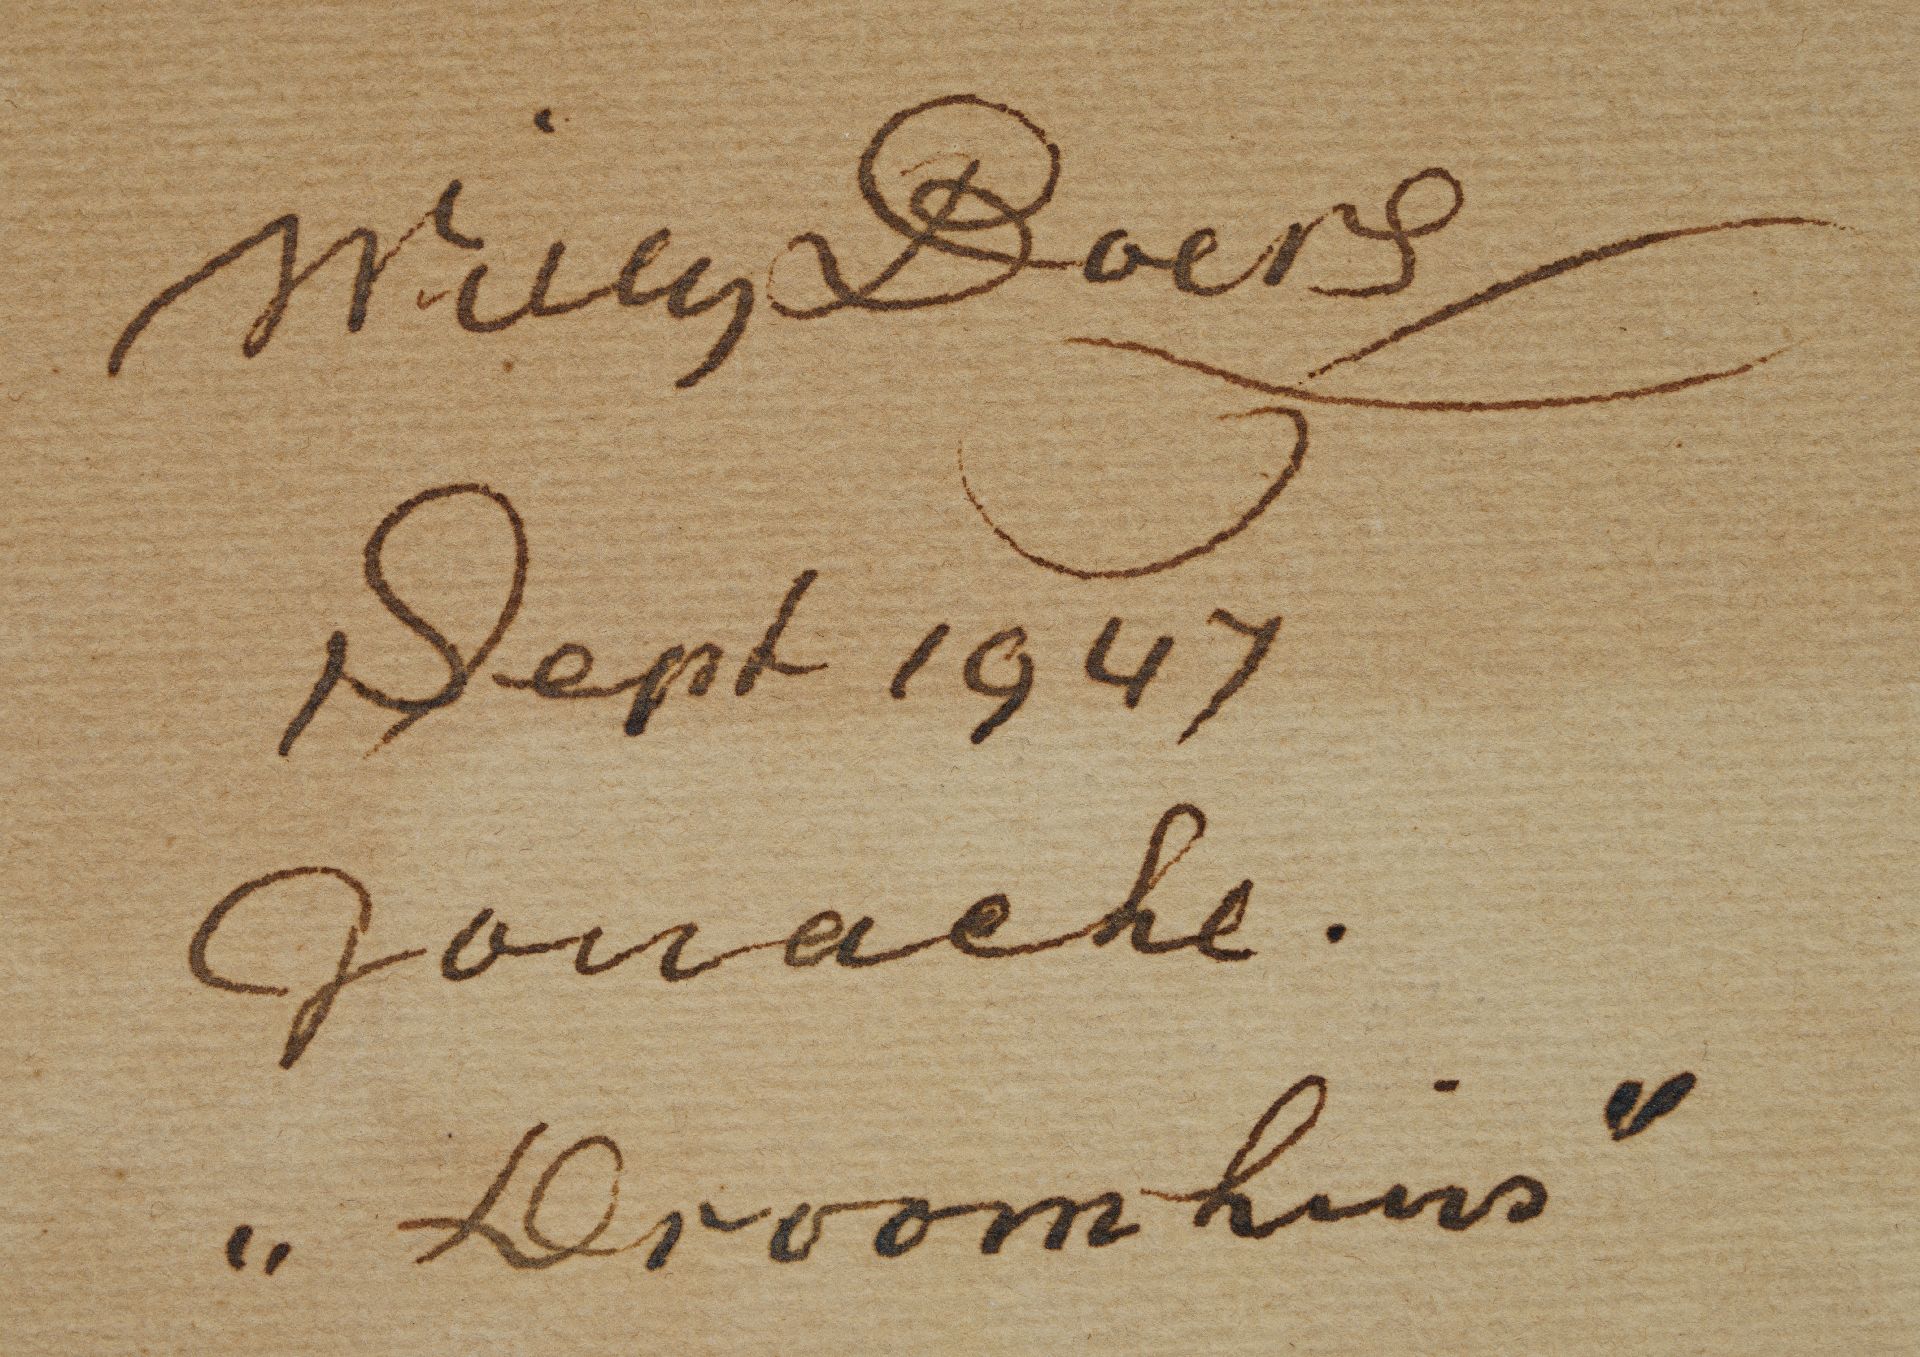 Willy Boers
Sept 1947
gouache.
„Droomhuis”